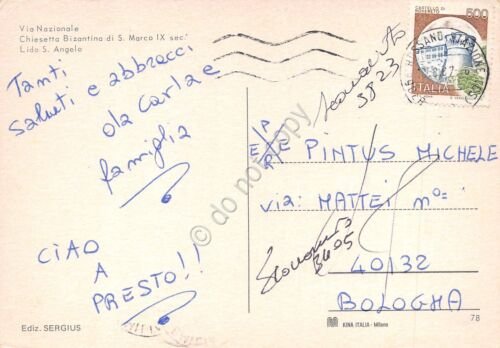 Via Nazionale
Chiesetta Bizantina di S. Marco IX sec.
Lido S. Angelo
Tanti
saluti e abbracci
da Carla e
famiglia
CIAO
A
PRESTO!!
Ediz. SERGIUS
CASTELLO DI
ROVERETO
500
ITALIA
ROSSANO STAZIONE
Sconosciuto
3823
E/P
E/R PINTUS MICHELE
via: MATTEI nº=
Sconosciuto
3405
40132
BOLOGNA
KINA ITALIA - Milano
78
© do not copy